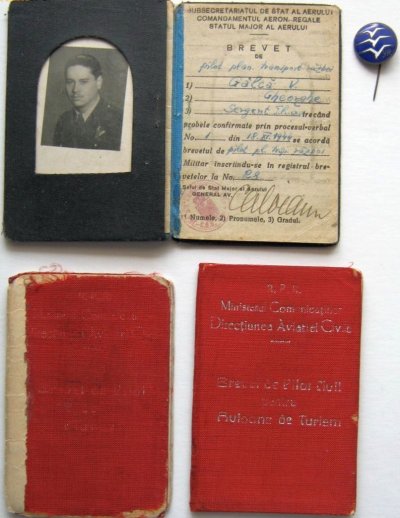 SUBSECRETARIATUL DE STAT AL AERULUI
COMANDAMENTUL AERON-REGALE
STATUL MAJOR AL AERULUI
BREVET
DE
pilot plan. transport războiu
1) Gâlcă V.
2) Gheorghe
3) Sergent trecând
probele confirmate prin procesul-verbal
No. 1 din 1944 se acordă
brevetul de pilot pl. trsp. război
Militar înscriindu-se în registrul bre-
vetelor la No.
Șeful de Stat Major al Aerului
GENERAL AV.
1) Numele, 2) Pronumele, 3) Gradul.
R. P. R.
Ministerul Comunicațiilor
Direcțiunea Aviației Civile
Brevet de Pilot
R. P. R.
Ministerul Comunicațiilor
Direcțiunea Aviației Civile
Brevet de Pilot Civil
pentru
Avioane de Turism